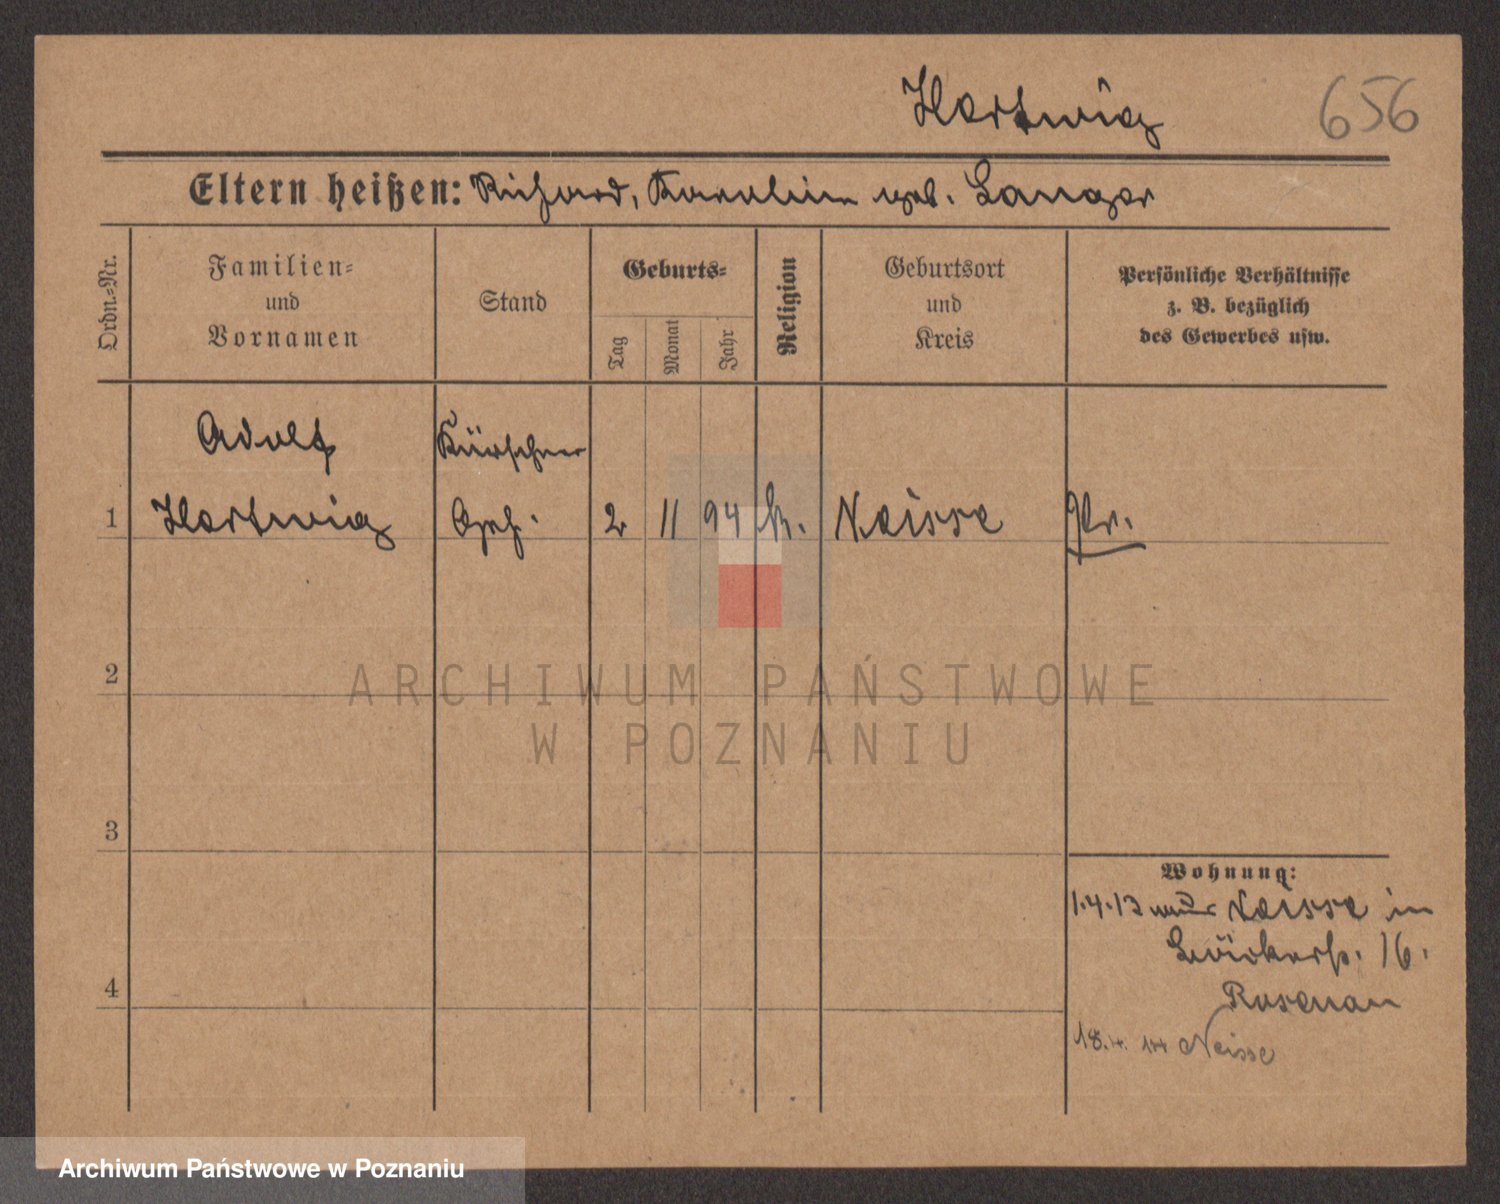 Hartwig 656
Eltern heißen: Richard, Karoline geb. Langer
Ordn.-Nr.
Familien-
und
Vornamen
Stand
Geburts-
Tag
Monat
Jahr
Religion
Geburtsort
und
Kreis
Persönliche Verhältnisse
z. B. bezüglich
des Gewerbes usw.
Adolf Kürschner
1 Hartwig Geh. 2 11 94 k. Neisse Pr.
2
3
4
Wohnung:
1.4.13 aus Neisse in
16.
Rosenau
18. 4. 14 Neisse
ARCHIWUM PAŃSTWOWE
W POZNANIU
Archiwum Państwowe w Poznaniu